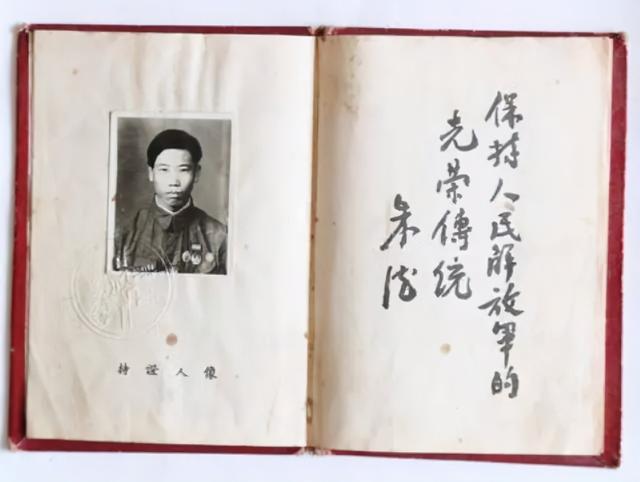 持證人像
保持人民解放軍的
光榮傳統
朱德